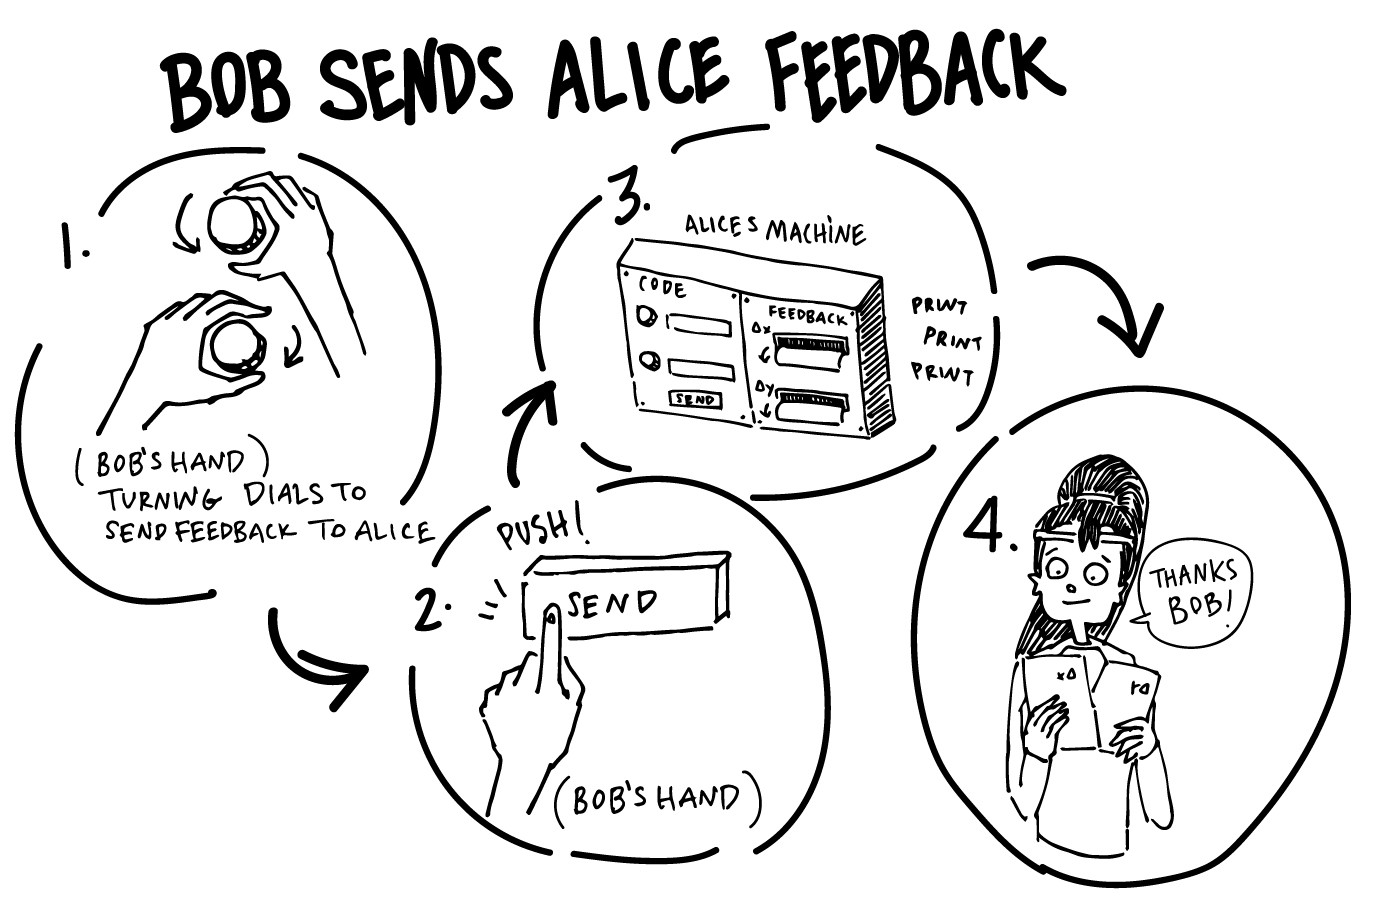 BOB SENDS ALICE FEEDBACK
1.
(BOB'S HAND)
TURNING DIALS TO
SEND FEEDBACK TO ALICE
2.
PUSH!
SEND
(BOB'S HAND)
3.
ALICES MACHINE
CODE
SEND
FEEDBACK
Δx
Δy
PRINT
PRINT
PRINT
4.
THANKS
BOB!
xΔ